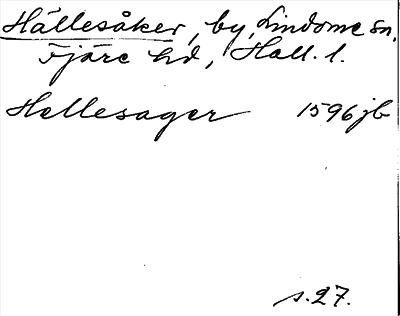 Hällesåker, by, Lindome sn,
Fjäre hd, Hall. l.
Hellesager 1596 jb
s. 27.